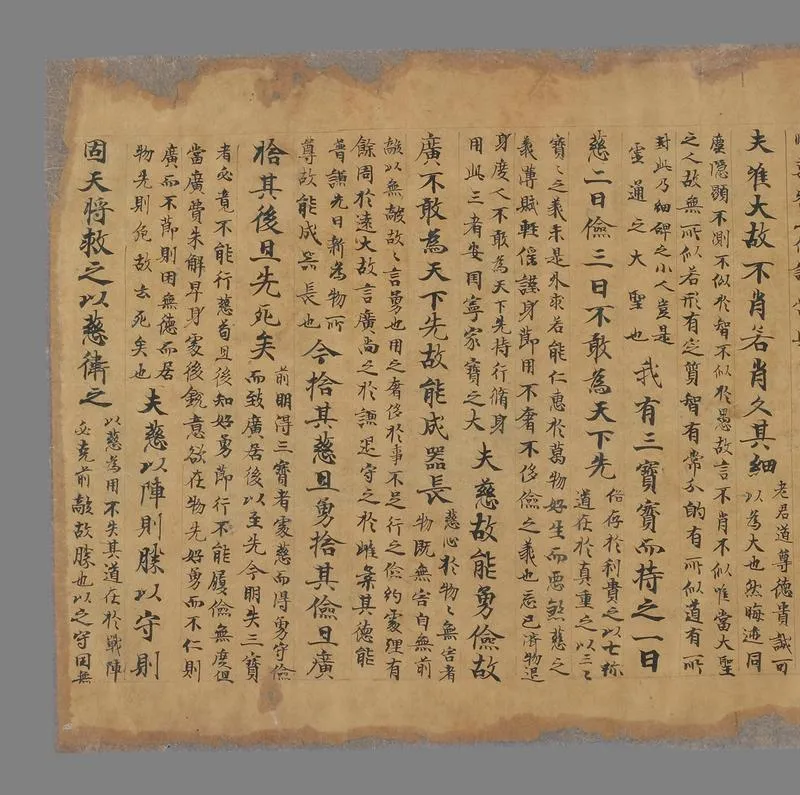 夫唯大故不肖若肖久其細
老君道尊德貴誠可
以為大也然晦迹同
塵隱顯不測不似於智不似於愚故言不肖不似唯當大聖
之人故無所似若形有定質智有常分的有所似道有所
封此乃細碎之小人豈是
靈通之大聖也
我有三寶寶而持之一曰
慈二曰儉三曰不敢為天下先
俗存於利貴之以七珎
道在於真重之以三〻
寶〻之義未是外求若能仁惠於萬物好生而惡煞慈之
義薄賦輕徭謹身節用不奢不侈儉之義也忘已濟物退
身度人不敢為天下先持行脩身
用此三者安国寧家寶之大
夫慈故能勇儉故
廣不敢為天下先故能成器長
慈心於物〻無害者
物既無害自無前
敵以無敵故〻言勇也用之奢侈於事不足行之儉約處理有
餘周於遠大故言廣尚之於謙退守之於雌柔其德能
普謙光日新為物所
尊故能成器長也
今捨其慈且勇捨其儉且廣
捨其後且先死矣
前明得三寶者處慈而得勇守儉
而致廣居後以至先今明失三寶
者必竟不能行慈苟且後知好勇節行不能履儉無度但
當廣費未解卑身處後銳意欲在物先好勇而不仁則
廣而不節則困無德而居
物先則危故去死矣也
夫慈以陣則勝以守則
固天將救之以慈衛之
以慈為用不失其道在於戰陣
必克前敵故勝也以之守国無